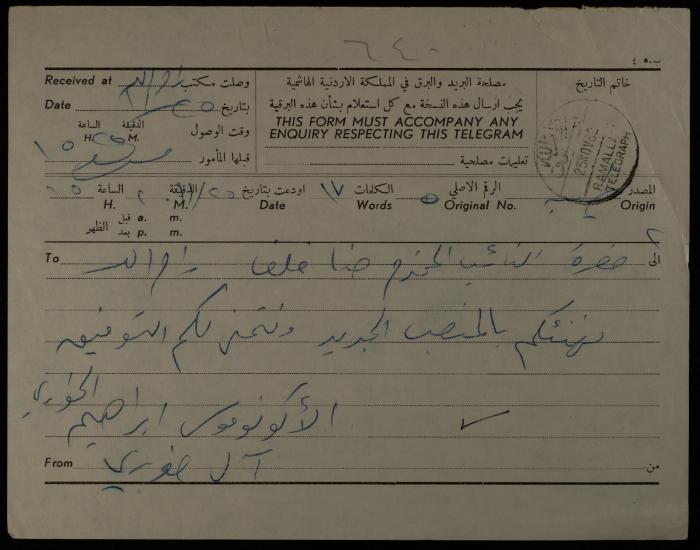 ٦٤٠
ب.ه ٤
Received at رام الله وصلت مكتب
مصلحة البريد والبرق في المملكة الاردنية الهاشمية
خاتم التاريخ
Date ٢٥/١١ بتاريخ
يجب ارسال هذه النسخة مع كل استعلام بشأن هذه البرقية
THIS FORM MUST ACCOMPANY ANY
ENQUIRY RESPECTING THIS TELEGRAM
الساعة الدقيقة وقت الوصول
H. M.
١٥
قبلها المأمور
تعليمات مصلحية
25 NOV 62
RAMALLAH
TELEGRAPH
المصدر
Origin
الرقم الاصلي
Original No. ٥
الكلمات ١٧
Words
اودعت بتاريخ ٢٥/١١
Date
الدقيقة
M.
الساعة ١٥
H.
قبل a. m.
بعد p. m.
الظهر
To الى
حضرة النائب المحترم حنا خلف رام الله
نهنئكم بالمنصب الجديد ونتمنى لكم التوفيق
الأكونوموس ابراهيم الخوري
آل خوري
From من